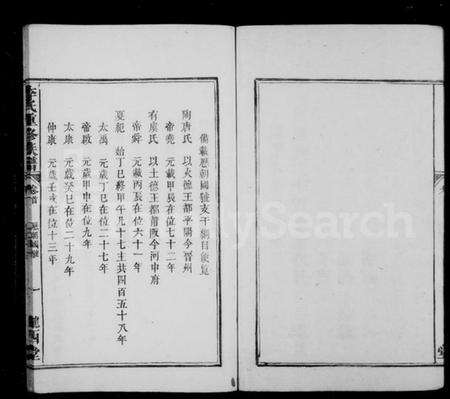 備載歷朝國號支干綱目後覧
陶唐氏 以火德王都平陽今晉州
帝堯 元載甲辰在位七十二年
有虞氏 以土德王都蒲阪今河中府
帝舜 元載丙辰在位六十一年
夏紀 始丁巳終甲午凡十七主共四百五十八年
大禹 元歲丁巳在位二十七年
帝啟 元歲甲申在位九年
太康 元歲癸巳在位二十九年
仲康 元歲壬戌在位十三年
李氏重修族譜 卷首 一 隴西堂
堂
MySearch